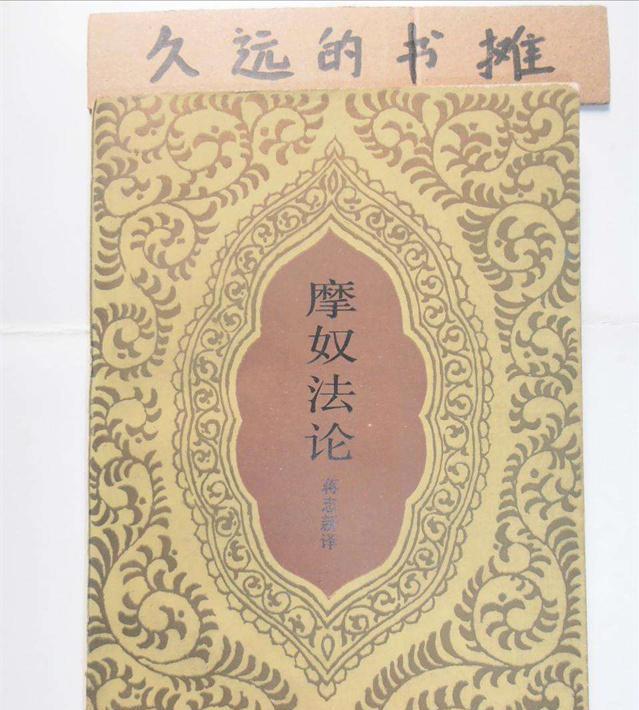 久远的书摊
摩奴法论
蒋忠新译